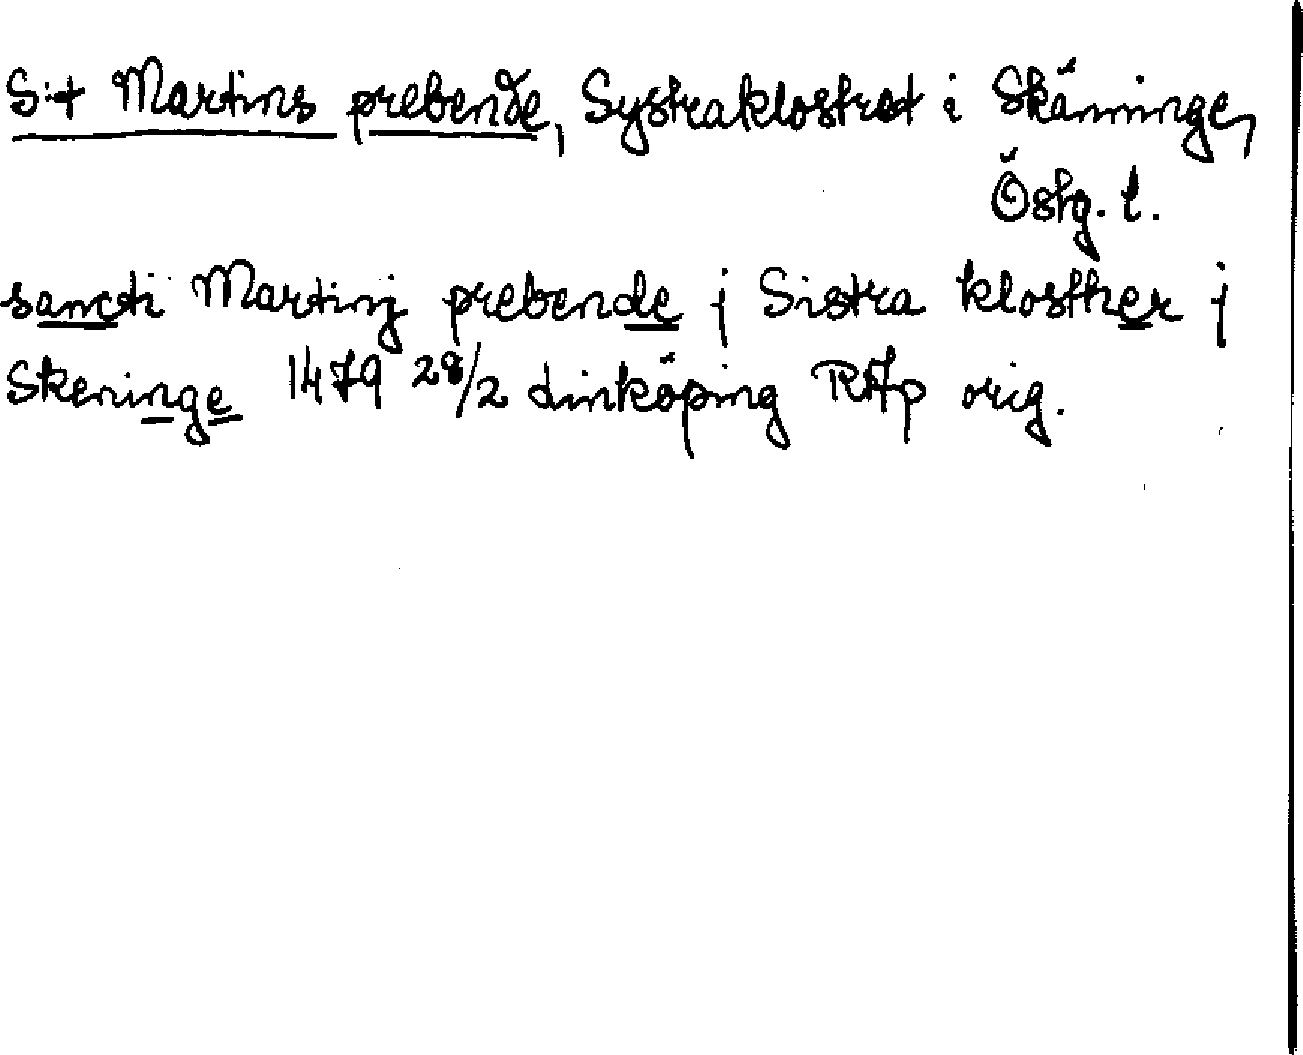 S:t Martins prebende, Systraklostret i Skänninge,
Östg. l.
sancti Martinj prebende j Sistra klosther j
Skeninge 1479 28/2 Linköping RAp orig.